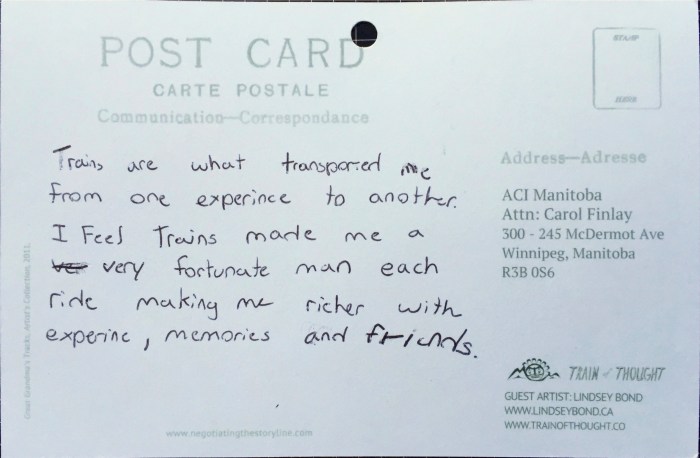 POST CARD
CARTE POSTALE
Communication—Correspondance
STAMP
Address—Adresse
Trains are what transported me
from one experince to another.
I Feel Trains made me a
very fortunate man each
ride making me richer with
experinc, memories and friends.
ACI Manitoba
Attn: Carol Finlay
300 - 245 McDermot Ave
Winnipeg, Manitoba
R3B 0S6
TRAIN of THOUGHT
GUEST ARTIST: LINDSEY BOND
WWW.LINDSEYBOND.CA
WWW.TRAINOFTHOUGHT.CO
www.negotiatingthestoryline.com
Great Grandma's Tracks, Artist's Collection, 2011.